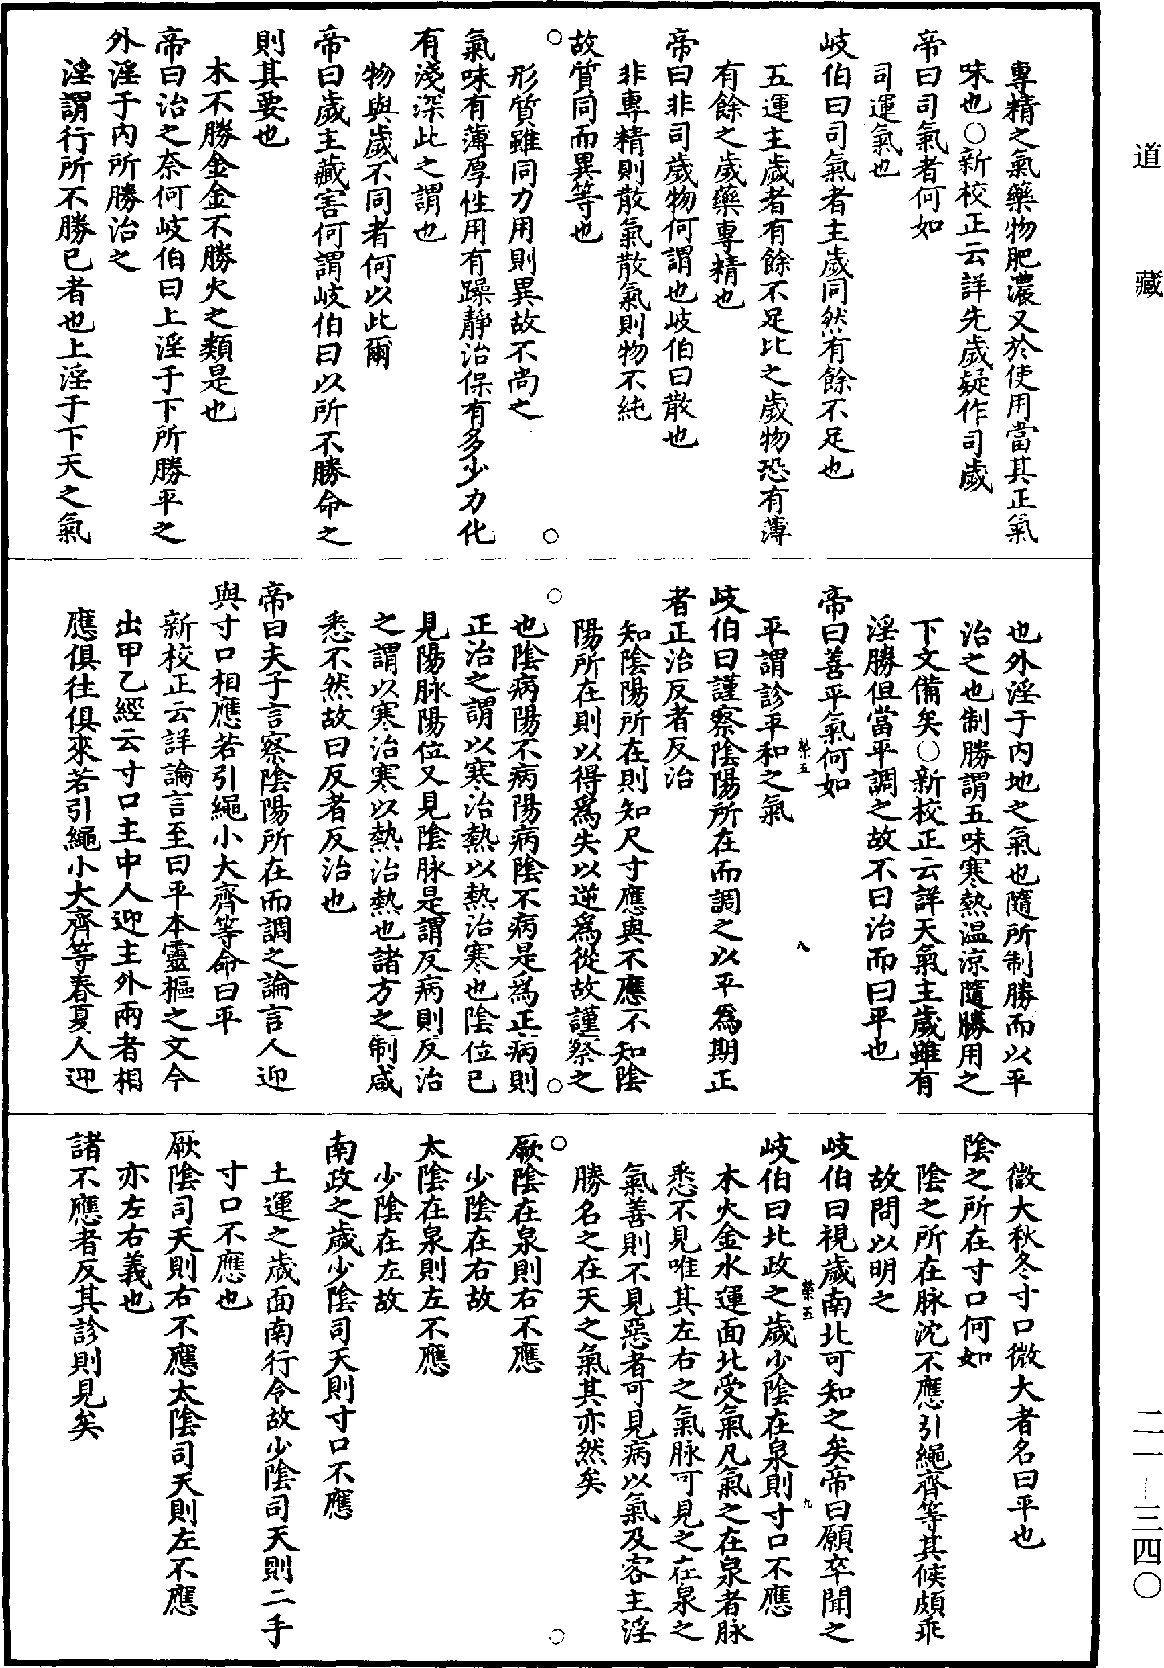 道藏
專精之氣藥物肥濃又於使用當其正氣
味也○新校正云詳先歲疑作司歲
帝曰司氣者何如
司運氣也
岐伯曰司氣者主歲同然有餘不足也
五運主歲者有餘不足比之歲物恐有薄
有餘之歲藥專精也
帝曰非司歲物何謂也岐伯曰散也
非專精則散氣散氣則物不純
故質同而異等也
形質雖同力用則異故不尚之
氣味有薄厚性用有躁靜治保有多少力化
有淺深此之謂也
物與歲不同者何以此爾
帝曰歲主藏害何謂岐伯曰以所不勝命之
則其要也
木不勝金金不勝火之類是也
帝曰治之奈何岐伯曰上淫于下所勝平之
外淫于內所勝治之
淫謂行所不勝已者也上淫于下天之氣
也外淫于內地之氣也隨所制勝而以平
治之也制勝謂五味寒熱温涼隨勝用之
下文備矣○新校正云詳天氣主歲雖有
淫勝但當平調之故不曰治而曰平也
帝曰善平氣何如
平謂診平和之氣
榮五 八
岐伯曰謹察陰陽所在而調之以平爲期正
者正治反者反治
知陰陽所在則知尺寸應與不應不知陰
陽所在則以得爲失以逆爲從故謹察之
也陰病陽不病陽病陰不病是爲正病則
正治之謂以寒治熱以熱治寒也陰位已
見陽脉陽位又見陰脉是謂反病則反治
之謂以寒治寒以熱治熱也諸方之制咸
悉不然故曰反者反治也
帝曰夫子言察陰陽所在而調之論言人迎
與寸口相應若引繩小大齊等命曰平
新校正云詳論言至曰平本靈樞之文今
出甲乙經云寸口主中人迎主外兩者相
應俱往俱來若引繩小大齊等春夏人迎
微大秋冬寸口微大者名曰平也
陰之所在寸口何如
陰之所在脉沈不應引繩齊等其候頗乖
故問以明之
岐伯曰視歲南北可知之矣帝曰願卒聞之
榮五 九
岐伯曰北政之歲少陰在泉則寸口不應
木火金水運面北受氣凡氣之在泉者脉
悉不見唯其左右之氣脉可見之在泉之
氣善則不見惡者可見病以氣及客主淫
勝名之在天之氣其亦然矣
厥陰在泉則右不應
少陰在右故
太陰在泉則左不應
少陰在左故
南政之歲少陰司天則寸口不應
土運之歲面南行令故少陰司天則二手
寸口不應也
厥陰司天則右不應太陰司天則左不應
亦左右義也
諸不應者反其診則見矣
二一—三四〇